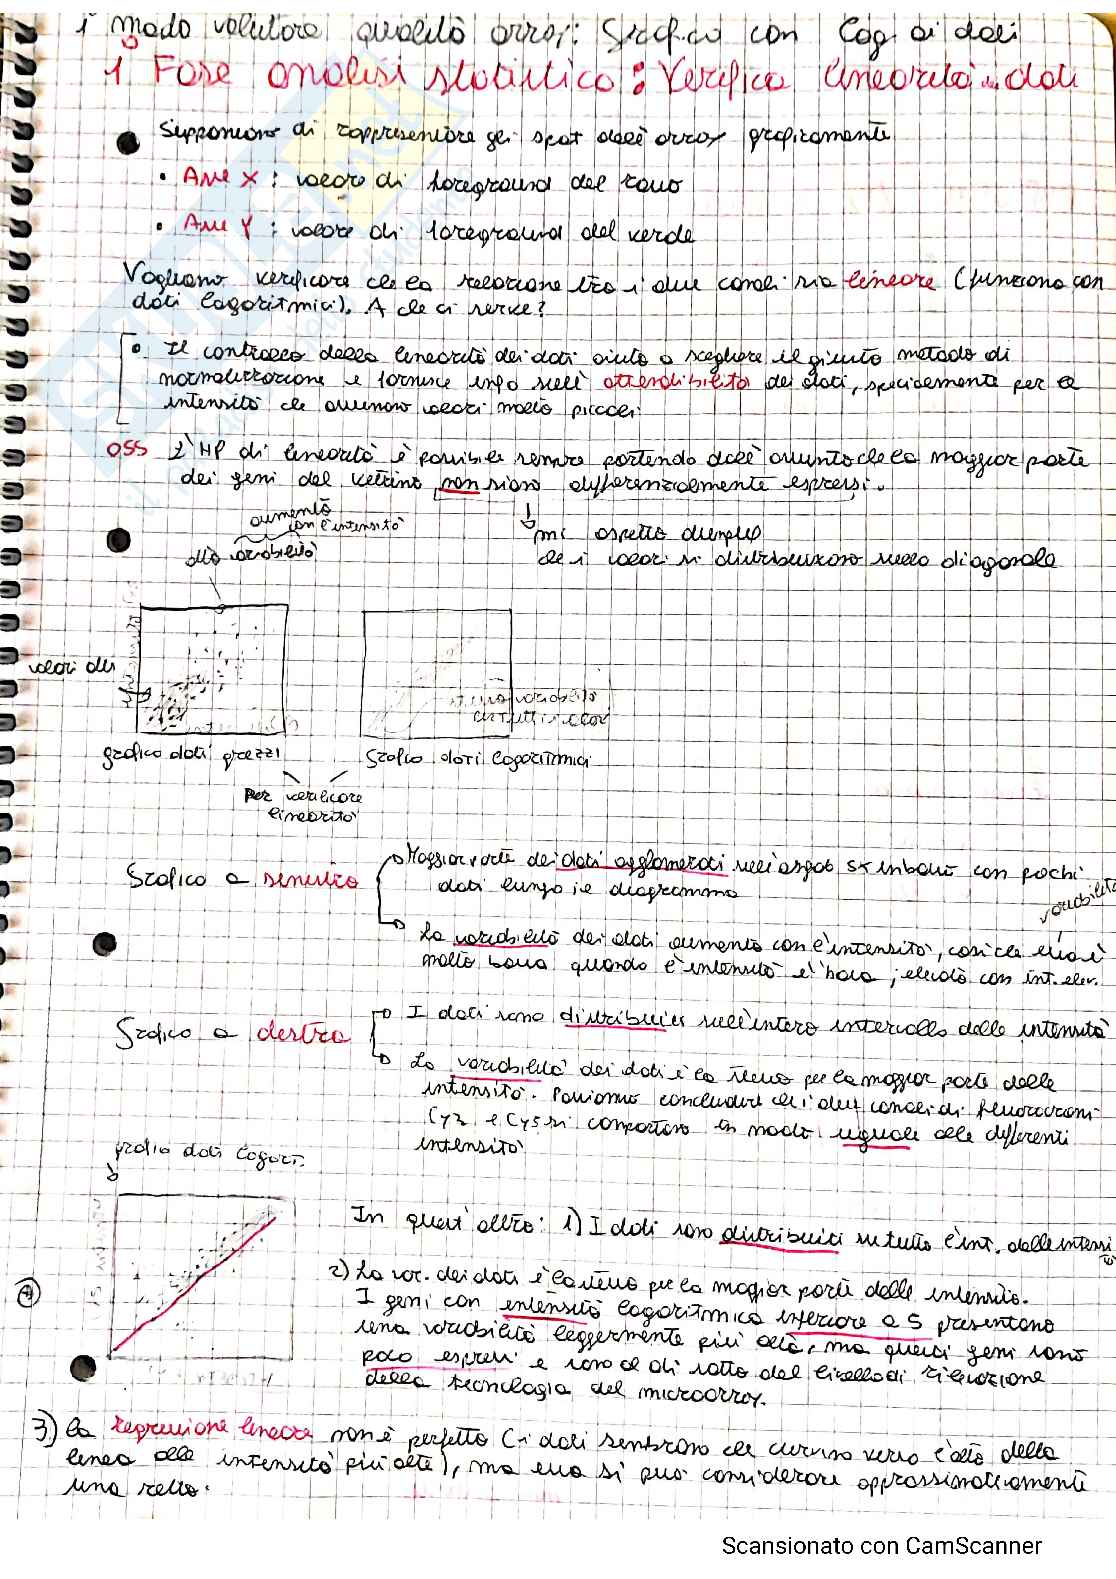 1° modo valutare qualità array: Grafico con log di dati
1 Fase analisi statistica: Verifica linearità dati
Supponiamo di rappresentare gli spot dell'array graficamente
• Asse X: valore di foreground del rosso
• Asse Y: valore di foreground del verde
Vogliamo verificare che la relazione tra i due canali sia lineare (funziona con
dati logaritmici). A che ci serve?
Il controllo della linearità dei dati aiuta a scegliere il giusto metodo di
normalizzazione e fornisce info sull'attendibilità dei dati, specialmente per le
intensità che assumono valori molto piccoli
OSS L'HP di linearità è possibile sempre partendo dall'assunto che la maggior parte
dei geni del vetrino non siano differenzialmente espressi.
aumenta
con l'intensità
alta variabilità
mi aspetto dunque
che i valori si distribuiscano sulla diagonale
valori
grafico dati grezzi
grafico dati logaritmici
Per verificare
linearità
Grafico a sinistra
Maggior parte dei dati agglomerati nell'angolo sx in basso con pochi
dati lungo il diagramma
variabilità
La variabilità dei dati aumenta con l'intensità, così che essa è
molto bassa quando l'intensità è bassa; elevata con int. elev.
Grafico a destra
I dati sono distribuiti sull'intero intervallo delle intensità
La variabilità dei dati è la stessa per la maggior parte delle
intensità. Possiamo concludere che i due canali di fluorocromi
Cy3 e Cy5 si comportano in modo uguale alle differenti
intensità
grafico dati logarit.
In quest'altro: 1) I dati sono distribuiti su tutto l'int. delle intensi
tà
2) La var. dei dati è la stessa per la maggior parte delle intensità.
I geni con intensità logaritmica inferiore a 5 presentano
una variabilità leggermente più alta, ma questi geni sono
poco espressi e sono al di sotto del livello di rilevazione
della tecnologia del microarray.
3) La regressione lineare non è perfetta (i dati sembrano che curvino verso l'alto della
linea alle intensità più alte), ma essa si può considerare approssimativamente
una retta.
Scansionato con CamScanner